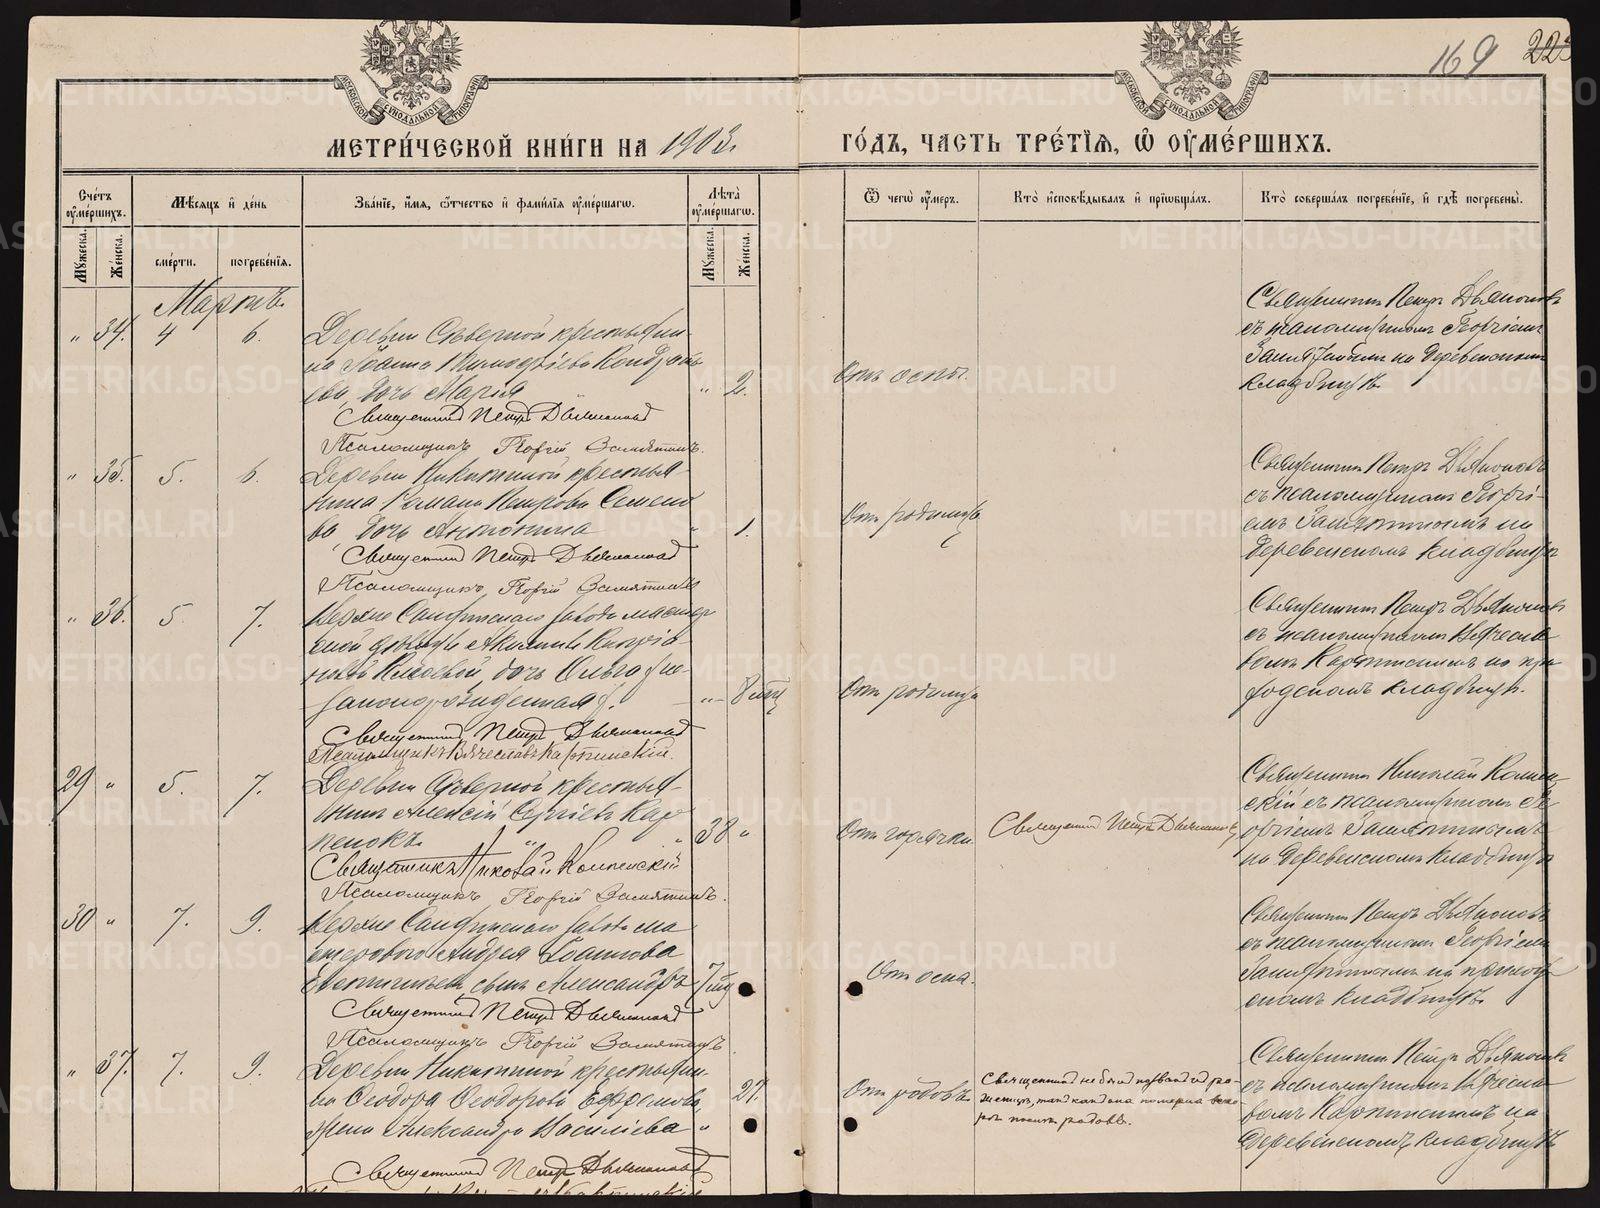 169 223
МЕТРИ́ЧЕСКОЙ КНИ́ГИ НА 1903.
ГО́ДЪ, ЧАСТЬ ТРЕ́ТІЯ, Ѡ ОУМЕ́РШИХЪ.
Сче́тъ оуме́ршихъ.
Мѣ́сяцъ и де́нь
Зва́ніе, и́мя, о́тчество и фами́лія оуме́ршагѡ.
Лѣта̀ оуме́ршагѡ.
Ѿ чегѡ̀ оу́меръ.
Кто̀ исповѣ́дывалъ и пріѡбща́лъ.
Кто̀ соверша́лъ погребе́ніе, и гдѣ̀ погребены̀.
Му́жеска.
Же́нска.
сме́рти.
погребе́нія.
Му́жеска.
Же́нска.
Мартъ.
" 34. 4 6.
Деревни Сѣверной крестьяни-
на Іоанна Тимоѳеева Кондрать
ева, дочь Марія " 2.
Священникъ Петръ Дьяконовъ
Псаломщикъ Георгій Замятинъ.
Отъ оспы.
Священникъ Петръ Дьяконовъ
съ псаломщикомъ Георгіемъ
Замятинымъ на деревенскомъ
кладбищѣ.
" 35. 5. 6.
Деревни Никитиной крестья-
нина Романа Петрова Семено
ва, дочь Антонина " 1.
Священникъ Петръ Дьяконовъ
Псаломщикъ Георгій Замятинъ
Отъ родимца
Священникъ Петръ Дьяконовъ
съ псаломщикомъ Георгі-
емъ Замятинымъ на
деревенскомъ кладбищѣ
" 36. 5. 7.
Верхне Салдинскаго завода мастер
ской дѣвицы
дочь Ольга (не-
законнорожденная). " 8 мѣс
Священникъ Петръ Дьяконовъ
Псаломщикъ Вячеславъ Карпинскій.
Отъ родимца
Священникъ Петръ Дьяконовъ
съ псаломщикомъ Вячесла-
вомъ Карпинскимъ на при
ходскомъ кладбищѣ.
29 " 5. 7.
Деревни Сѣверной крестья-
нинъ Алексій Сергіевъ Кар
пенокъ. " 38 "
Священникъ Николай Коппенскій
Псаломщикъ Георгій Замятинъ.
Отъ горячки.
Священникъ Петръ Дьяконовъ
Священникъ Николай
скій съ псаломщикомъ Ге-
оргіемъ Замятинымъ
на деревенскомъ кладбищѣ
30 " 7. 9.
Верхне Салдинскаго завода ма
стероваго Андрея Іоаннова
сынъ Александръ 7 мѣс
Священникъ Петръ Дьяконовъ
Псаломщикъ Георгій Замятинъ.
Отъ оспы.
Священникъ Петръ Дьяконовъ
съ псаломщикомъ Георгіемъ
Замятинымъ на приход
скомъ кладбищѣ.
" 37. 7. 9.
Деревни Никитиной крестьяни-
на Ѳеодора Ѳеодорова Ефремова,
жена Александра Васильева " 27.
Священникъ Петръ Дьяконовъ
Отъ родовъ.
Священникъ не былъ позванъ къ ро-
женицѣ, такъ какъ она померла вско-
рѣ послѣ родовъ.
Священникъ Петръ Дьяконовъ
съ псаломщикомъ Вячесла
вомъ Карпинскимъ на
деревенскомъ кладбищѣ